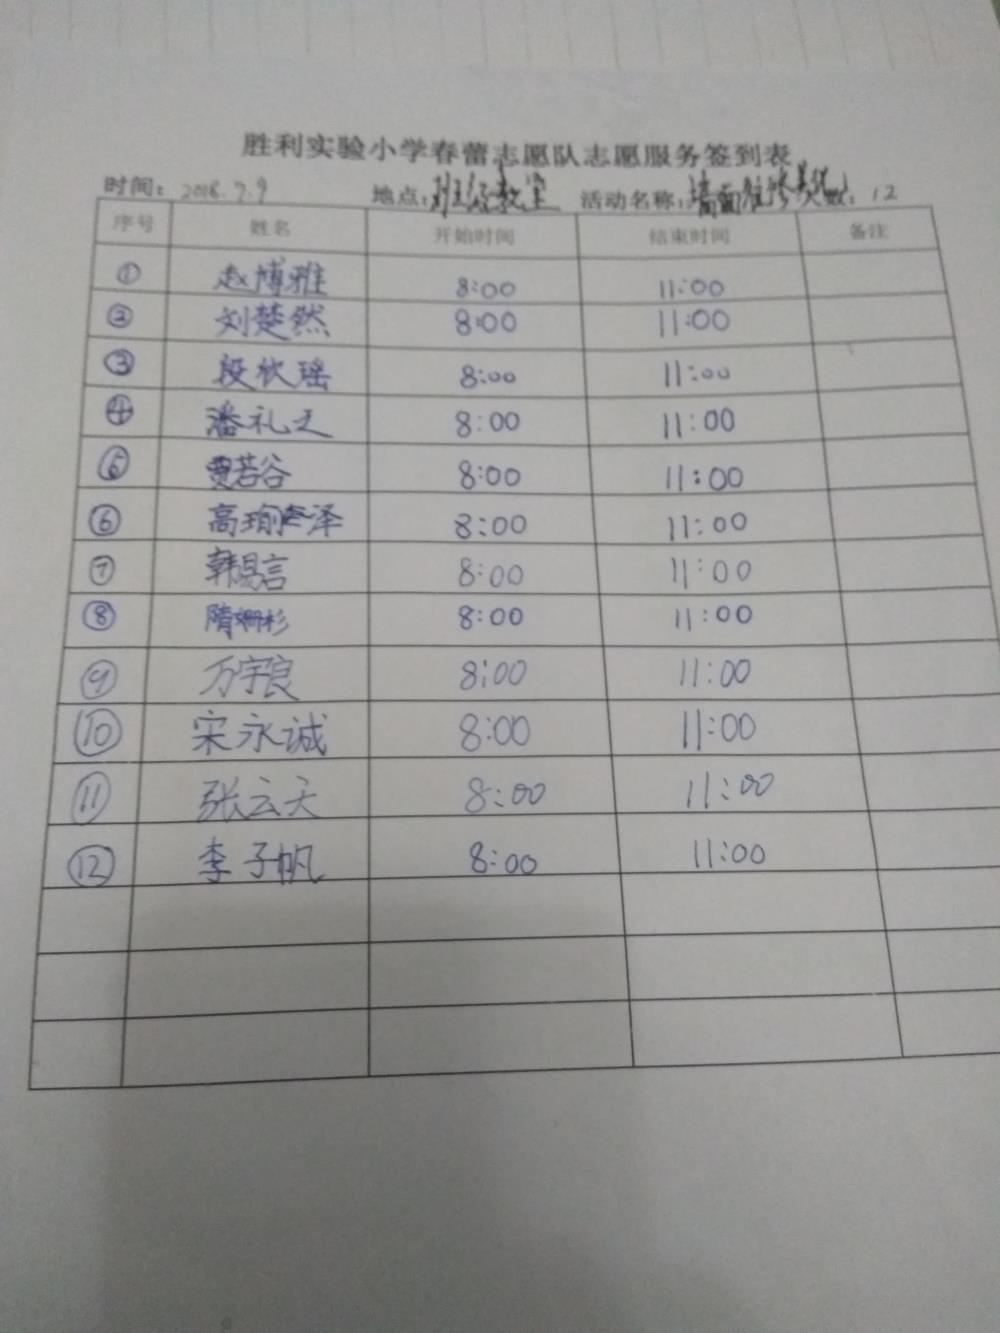 胜利实验小学春蕾志愿队志愿服务签到表
时间：2018.7.9 地点：班级教室 活动名称：墙面 美化 数：12
序号 姓名 开始时间 结束时间 备注
① 赵博雅 8:00 11:00
② 刘楚然 8:00 11:00
③ 段欣瑶 8:00 11:00
④ 潘礼之 8:00 11:00
⑤ 贾若谷 8:00 11:00
⑥ 高 泽 8:00 11:00
⑦ 韩易言 8:00 11:00
⑧ 隋姗杉 8:00 11:00
⑨ 万宇良 8:00 11:00
⑩ 宋永诚 8:00 11:00
⑪ 张云天 8:00 11:00
⑫ 李子帆 8:00 11:00